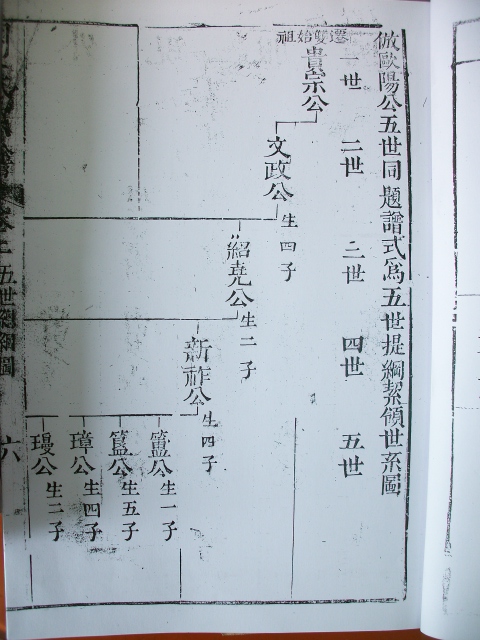 倣歐陽公五世同題譜式爲五世提綱絜領世系圖
一世
二世
三世
四世
五世
遷雙始祖
貴崇公
文政公生四子
紹堯公生二子
新祚公生四子
簠公生一子
簋公生五子
璋公生四子
公生二子
五世綱圖
六